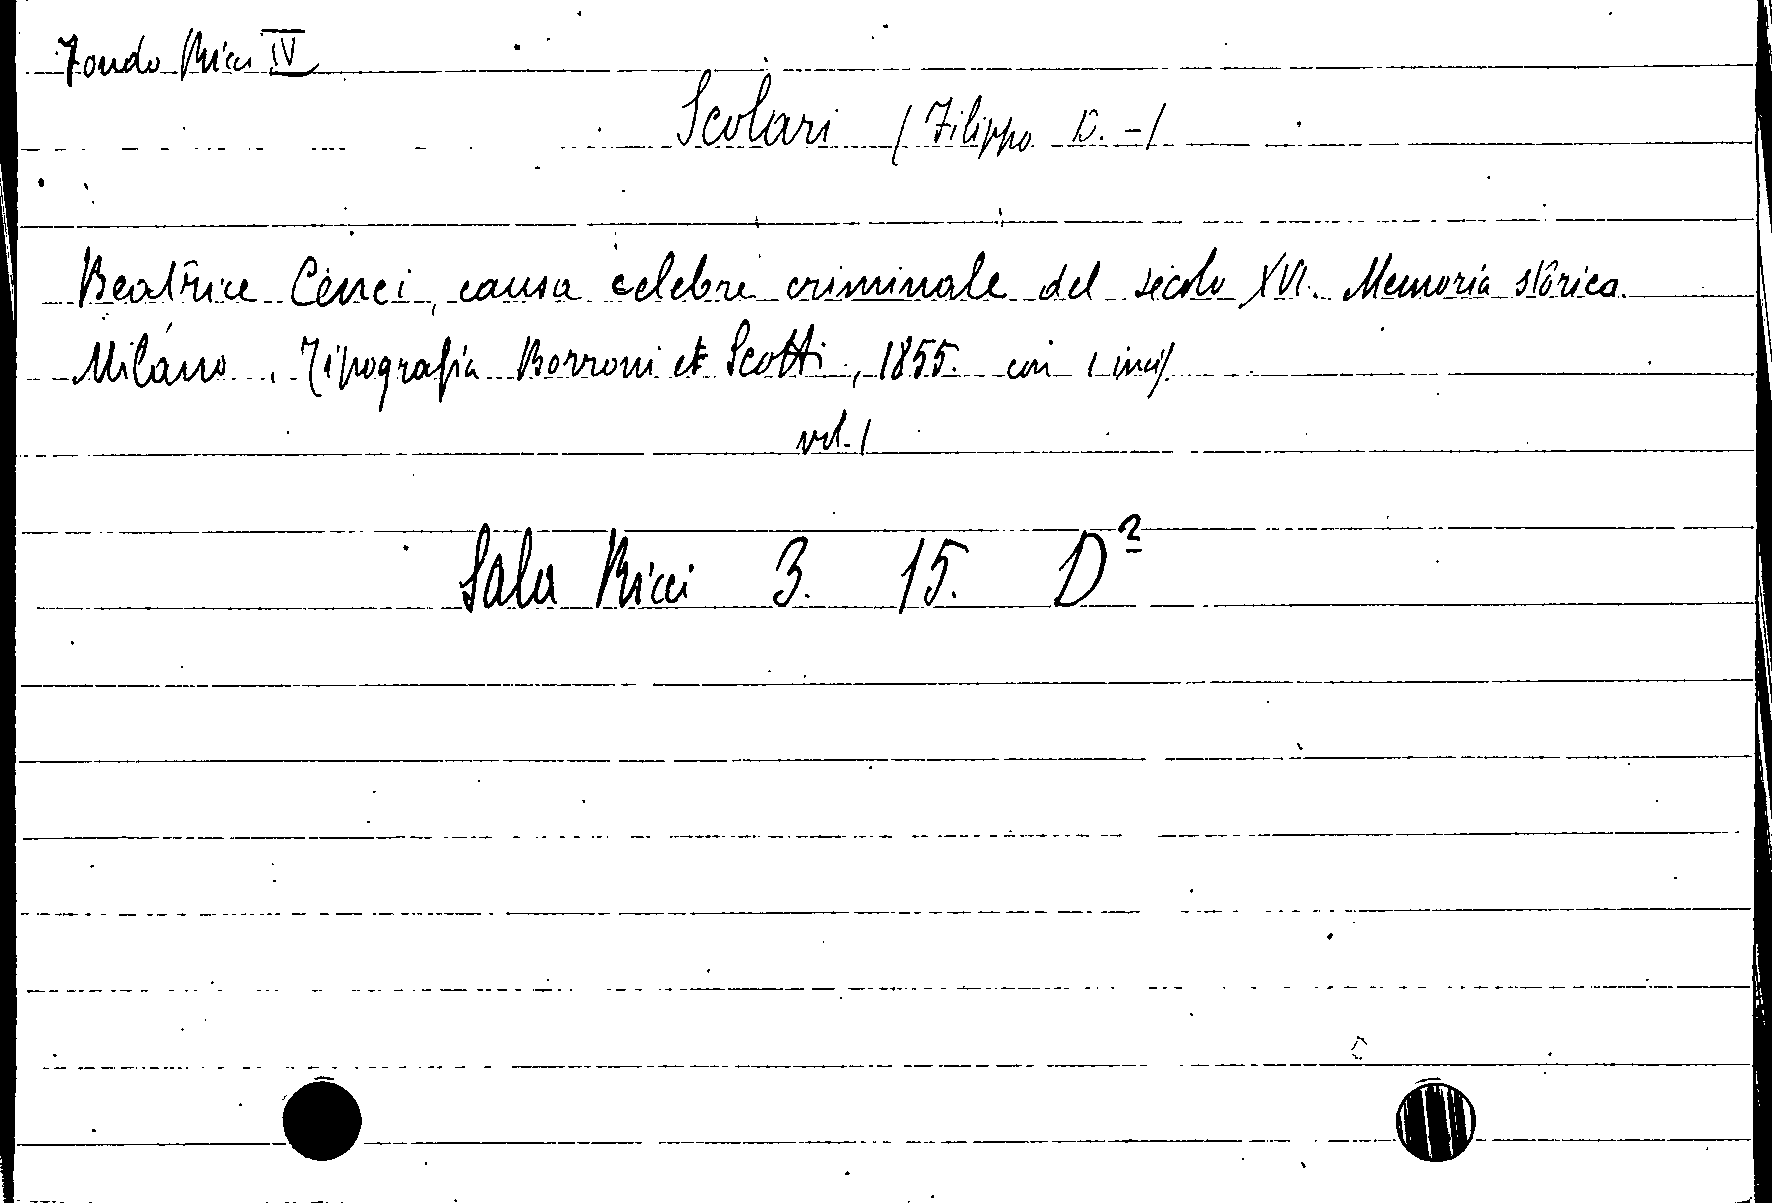 Fondo Ricci IV
Scolari (Filippo D. -)
Beatrice Cenci, causa celebre criminale del secolo XVI. Memoria storica.
Milano. Tipografia Borroni et Scotti, 1855. con 1 inc.
vol. 1
Sala Ricci 3. 15. D²